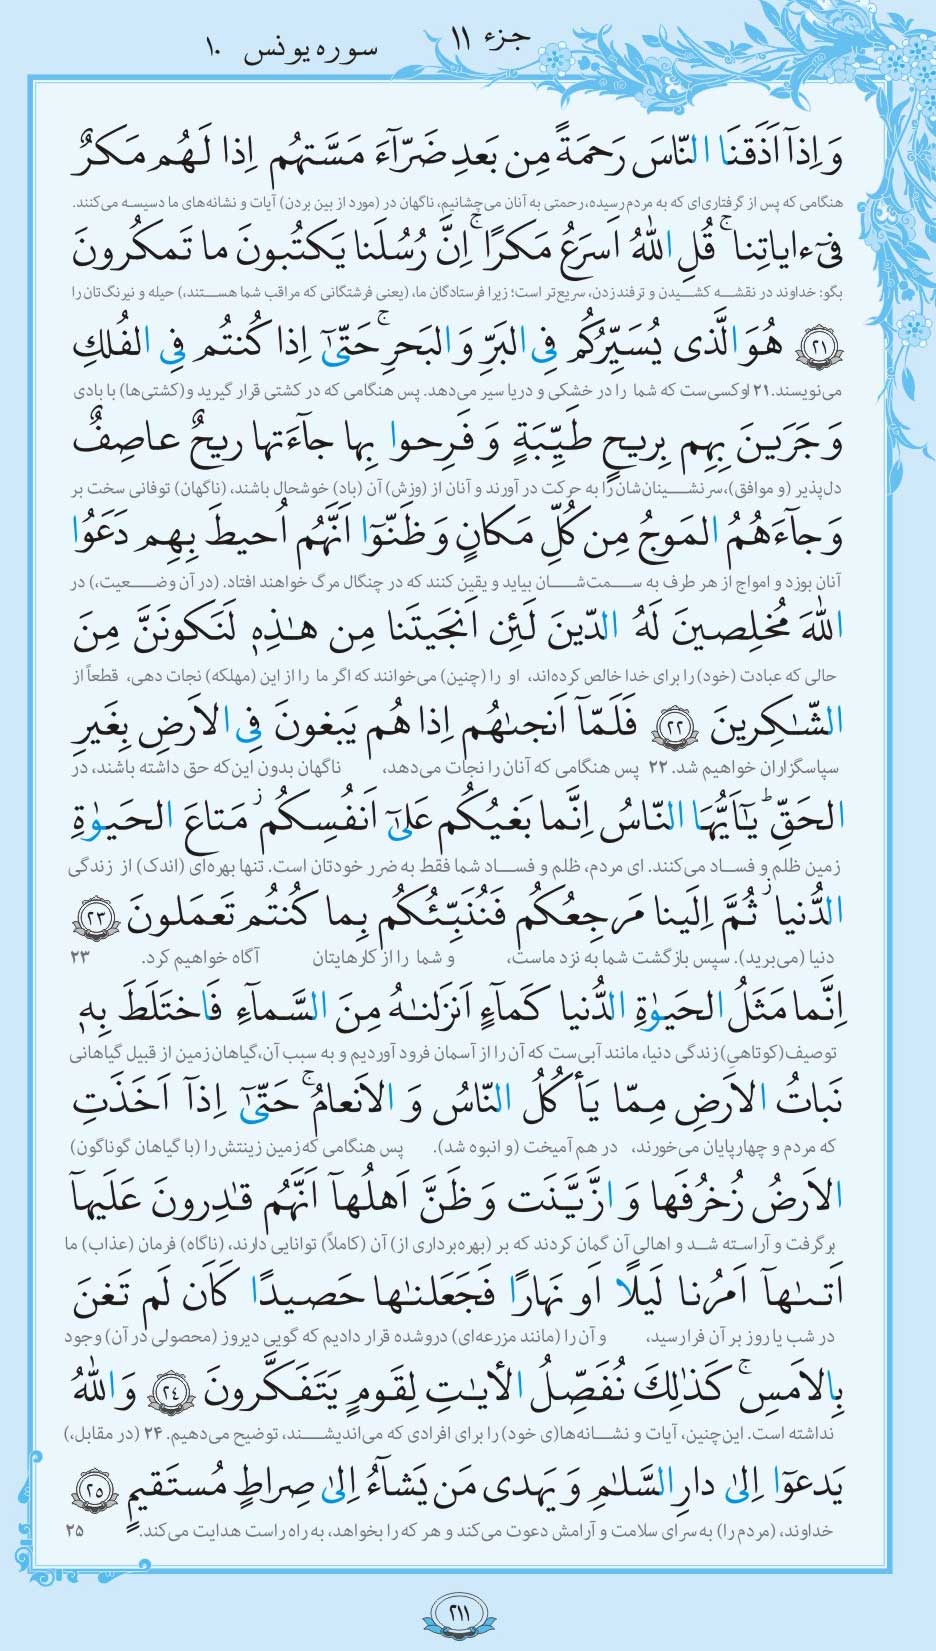 جزء ۱۱
سوره یونس ۱۰
وَ اِذآ اَذَقنَا النّاسَ رَحمَةً مِن بَعدِ ضَرّآءَ مَسَّتهُم اِذا لَهُم مَکرٌ
هنگامی که پس از گرفتاری‌ای که به مردم رسیده، رحمتی به آنان می‌چشانیم، ناگهان در (مورد از بین بردن) آیات و نشانه‌های ما دسیسه می‌کنند.
فی ءایاتِنا ۚ قُلِ اللهُ اَسرَعُ مَکرًا ۚ اِنَّ رُسُلَنا یَکتُبونَ ما تَمکُرونَ
بگو: خداوند در نقشه کشیدن و ترفند زدن، سریع‌تر است؛ زیرا فرستادگان ما، (یعنی فرشتگانی که مراقب شما هستند،) حیله و نیرنگ‌تان را
﴿۲۱﴾ هُوَ الَّذی یُسَیِّرُکُم فِی البَرِّ وَ البَحرِ ۚ حَتّیٰٓ اِذا کُنتُم فِی الفُلکِ
می‌نویسند. ۲۱ او کسی‌ست که شما را در خشکی و دریا سیر می‌دهد. پس هنگامی که در کشتی قرار گیرید و (کشتی‌ها) با بادی
وَ جَرَینَ بِهِم بِریحٍ طَیِّبَةٍ وَ فَرِحوا بِها جآءَتها ریحٌ عاصِفٌ
دل‌پذیر (و موافق)، سرنشینان‌شان را به حرکت در آورند و آنان از (وزش) آن (باد) خوشحال باشند، (ناگهان) توفانی سخت بر
وَ جآءَهُمُ المَوجُ مِن کُلِّ مَکانٍ وَ ظَنّوٓا اَنَّهُم اُحیطَ بِهِم دَعَوُا
آنان بوزد و امواج از هر طرف به سمت‌شان بیاید و یقین کنند که در چنگال مرگ خواهند افتاد. (در آن وضعیت،) در
اللهَ مُخلِصینَ لَهُ الدّینَ لَئِن اَنجَیتَنا مِن هـٰذِهٖ لَنَکونَنَّ مِنَ
حالی که عبادت (خود) را برای خدا خالص کرده‌اند، او را (چنین) می‌خوانند که اگر ما را از این (مهلکه) نجات دهی، قطعاً از
الشّـٰکِرینَ ﴿۲۲﴾ فَلَمّآ اَنجـٰهُم اِذا هُم یَبغونَ فِی الاَرضِ بِغَیرِ
سپاسگزاران خواهیم شد. ۲۲ پس هنگامی که آنان را نجات می‌دهد، ناگهان بدون این‌که حق داشته باشند، در
الحَقِّ ۗ یـٰٓاَیُّهَا النّاسُ اِنَّما بَغیُکُم عَلیٰٓ اَنفُسِکُم ۖ مَتاعَ الحَیوٰةِ
زمین ظلم و فساد می‌کنند. ای مردم، ظلم و فساد شما فقط به ضرر خودتان است. تنها بهره‌ای (اندک) از زندگی
الدُّنیا ۖ ثُمَّ اِلَینا مَرجِعُکُم فَنُنَبِّئُکُم بِما کُنتُم تَعمَلونَ ﴿۲۳﴾
دنیا (می‌برید). سپس بازگشت شما به نزد ماست، و شما را از کارهایتان آگاه خواهیم کرد. ۲۳
اِنَّما مَثَلُ الحَیوٰةِ الدُّنیا کَمآءٍ اَنزَلنـٰهُ مِنَ السَّمآءِ فَاختَلَطَ بِهٖ
توصیف (کوتاهیِ) زندگی دنیا، مانند آبی‌ست که آن را از آسمان فرود آوردیم و به سبب آن، گیاهان زمین از قبیل گیاهانی
نَباتُ الاَرضِ مِمّا یَأکُلُ النّاسُ وَ الاَنعامُ ۚ حَتّیٰٓ اِذآ اَخَذَتِ
که مردم و چهارپایان می‌خورند، در هم آمیخت (و انبوه شد). پس هنگامی که زمین زینتش را (با گیاهان گوناگون)
الاَرضُ زُخرُفَها وَ ازَّیَّنَت وَ ظَنَّ اَهلُهآ اَنَّهُم قـٰدِرونَ عَلَیهآ
برگرفت و آراسته شد و اهالی آن گمان کردند که بر (بهره‌برداری از) آن (کاملاً) توانایی دارند، (ناگاه) فرمان (عذاب) ما
اَتـٰهآ اَمرُنا لَیلًا اَو نَهارًا فَجَعَلنـٰها حَصیدًا کَاَن لَم تَغنَ
در شب یا روز بر آن فرا رسید، و آن را (مانند مزرعه‌ای) دروشده قرار دادیم که گویی دیروز (محصولی در آن) وجود
بِالاَمسِ ۚ کَذٰلِکَ نُفَصِّلُ الاٰیـٰتِ لِقَومٍ یَتَفَکَّرونَ ﴿۲۴﴾ وَ اللهُ
نداشته است. این‌چنین، آیات و نشانه‌ها(ی خود) را برای افرادی که می‌اندیشند، توضیح می‌دهیم. ۲۴ (در مقابل،)
یَدعوٓا اِلیٰ دارِ السَّلـٰمِ وَ یَهدی مَن یَشآءُ اِلیٰ صِراطٍ مُستَقیمٍ ﴿۲۵﴾
خداوند، (مردم را) به سرای سلامت و آرامش دعوت می‌کند و هر که را بخواهد، به راه راست هدایت می‌کند. ۲۵
۲۱۱